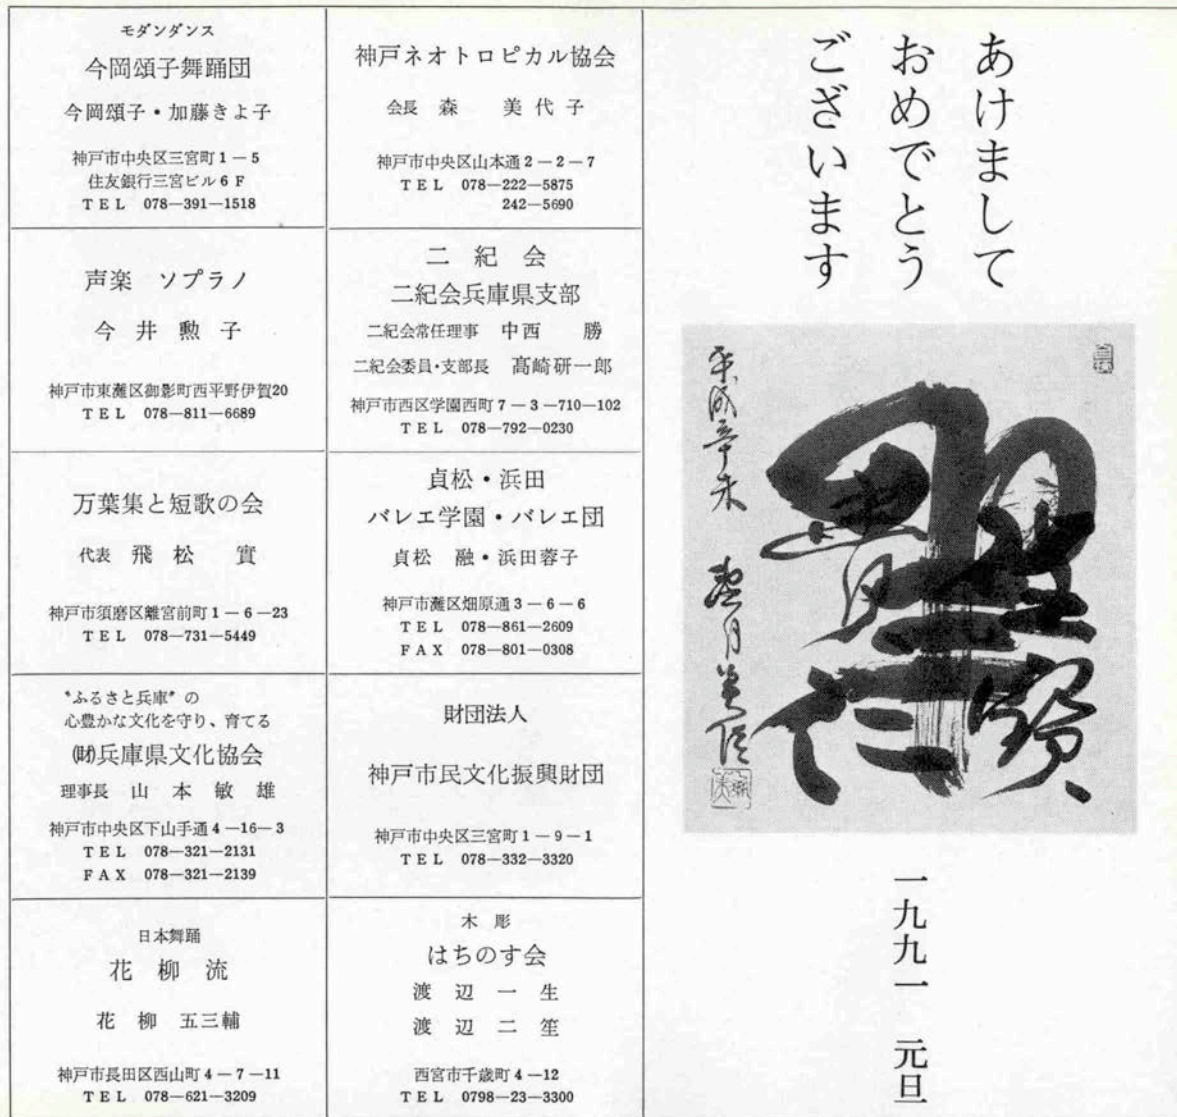 あけまして
おめでとう
ございます
平成辛未
一九九一 元旦
神戸ネオトロピカル協会
会長 森 美代子
神戸市中央区山本通2−2−7
TEL 078—222—5875
242—5690
二紀会
二紀会兵庫県支部
二紀会常任理事 中西 勝
二紀会委員・支部長 髙崎研一郎
神戸市西区学園西町7−3−710−102
TEL 078—792—0230
貞松・浜田
バレエ学園・バレエ団
貞松 融・浜田蓉子
神戸市灘区畑原通3−6−6
TEL 078—861—2609
FAX 078—801—0308
財団法人
神戸市民文化振興財団
神戸市中央区三宮町1−9−1
TEL 078—332—3320
木彫
はちのす会
渡辺一生
渡辺二笙
西宮市千歳町4−12
TEL 0798—23—3300
モダンダンス
今岡頌子舞踊団
今岡頌子・加藤きよ子
神戸市中央区三宮町1−5
住友銀行三宮ビル6F
TEL 078—391—1518
声楽 ソプラノ
今井勲子
神戸市東灘区御影町西平野伊賀20
TEL 078—811—6689
万葉集と短歌の会
代表 飛松 實
神戸市須磨区離宮前町1−6−23
TEL 078—731—5449
〝ふるさと兵庫〞の
心豊かな文化を守り、育てる
㈶兵庫県文化協会
理事長 山本敏雄
神戸市中央区下山手通4−16−3
TEL 078—321—2131
FAX 078—321—2139
日本舞踊
花柳流
花柳 五三輔
神戸市長田区西山町4−7−11
TEL 078—621—3209